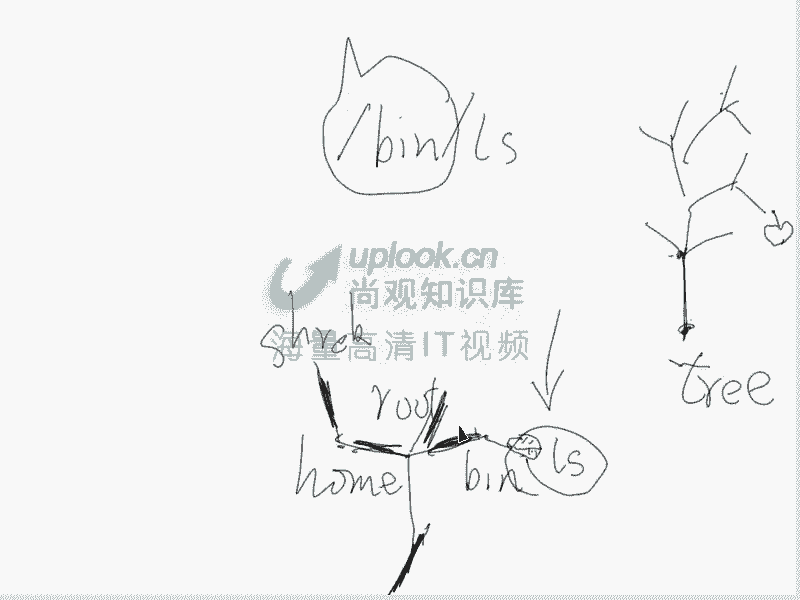 /bin/ls
uplook.cn
尚观知识库
海量高清IT视频
shrek
tree
root
home
bin
ls